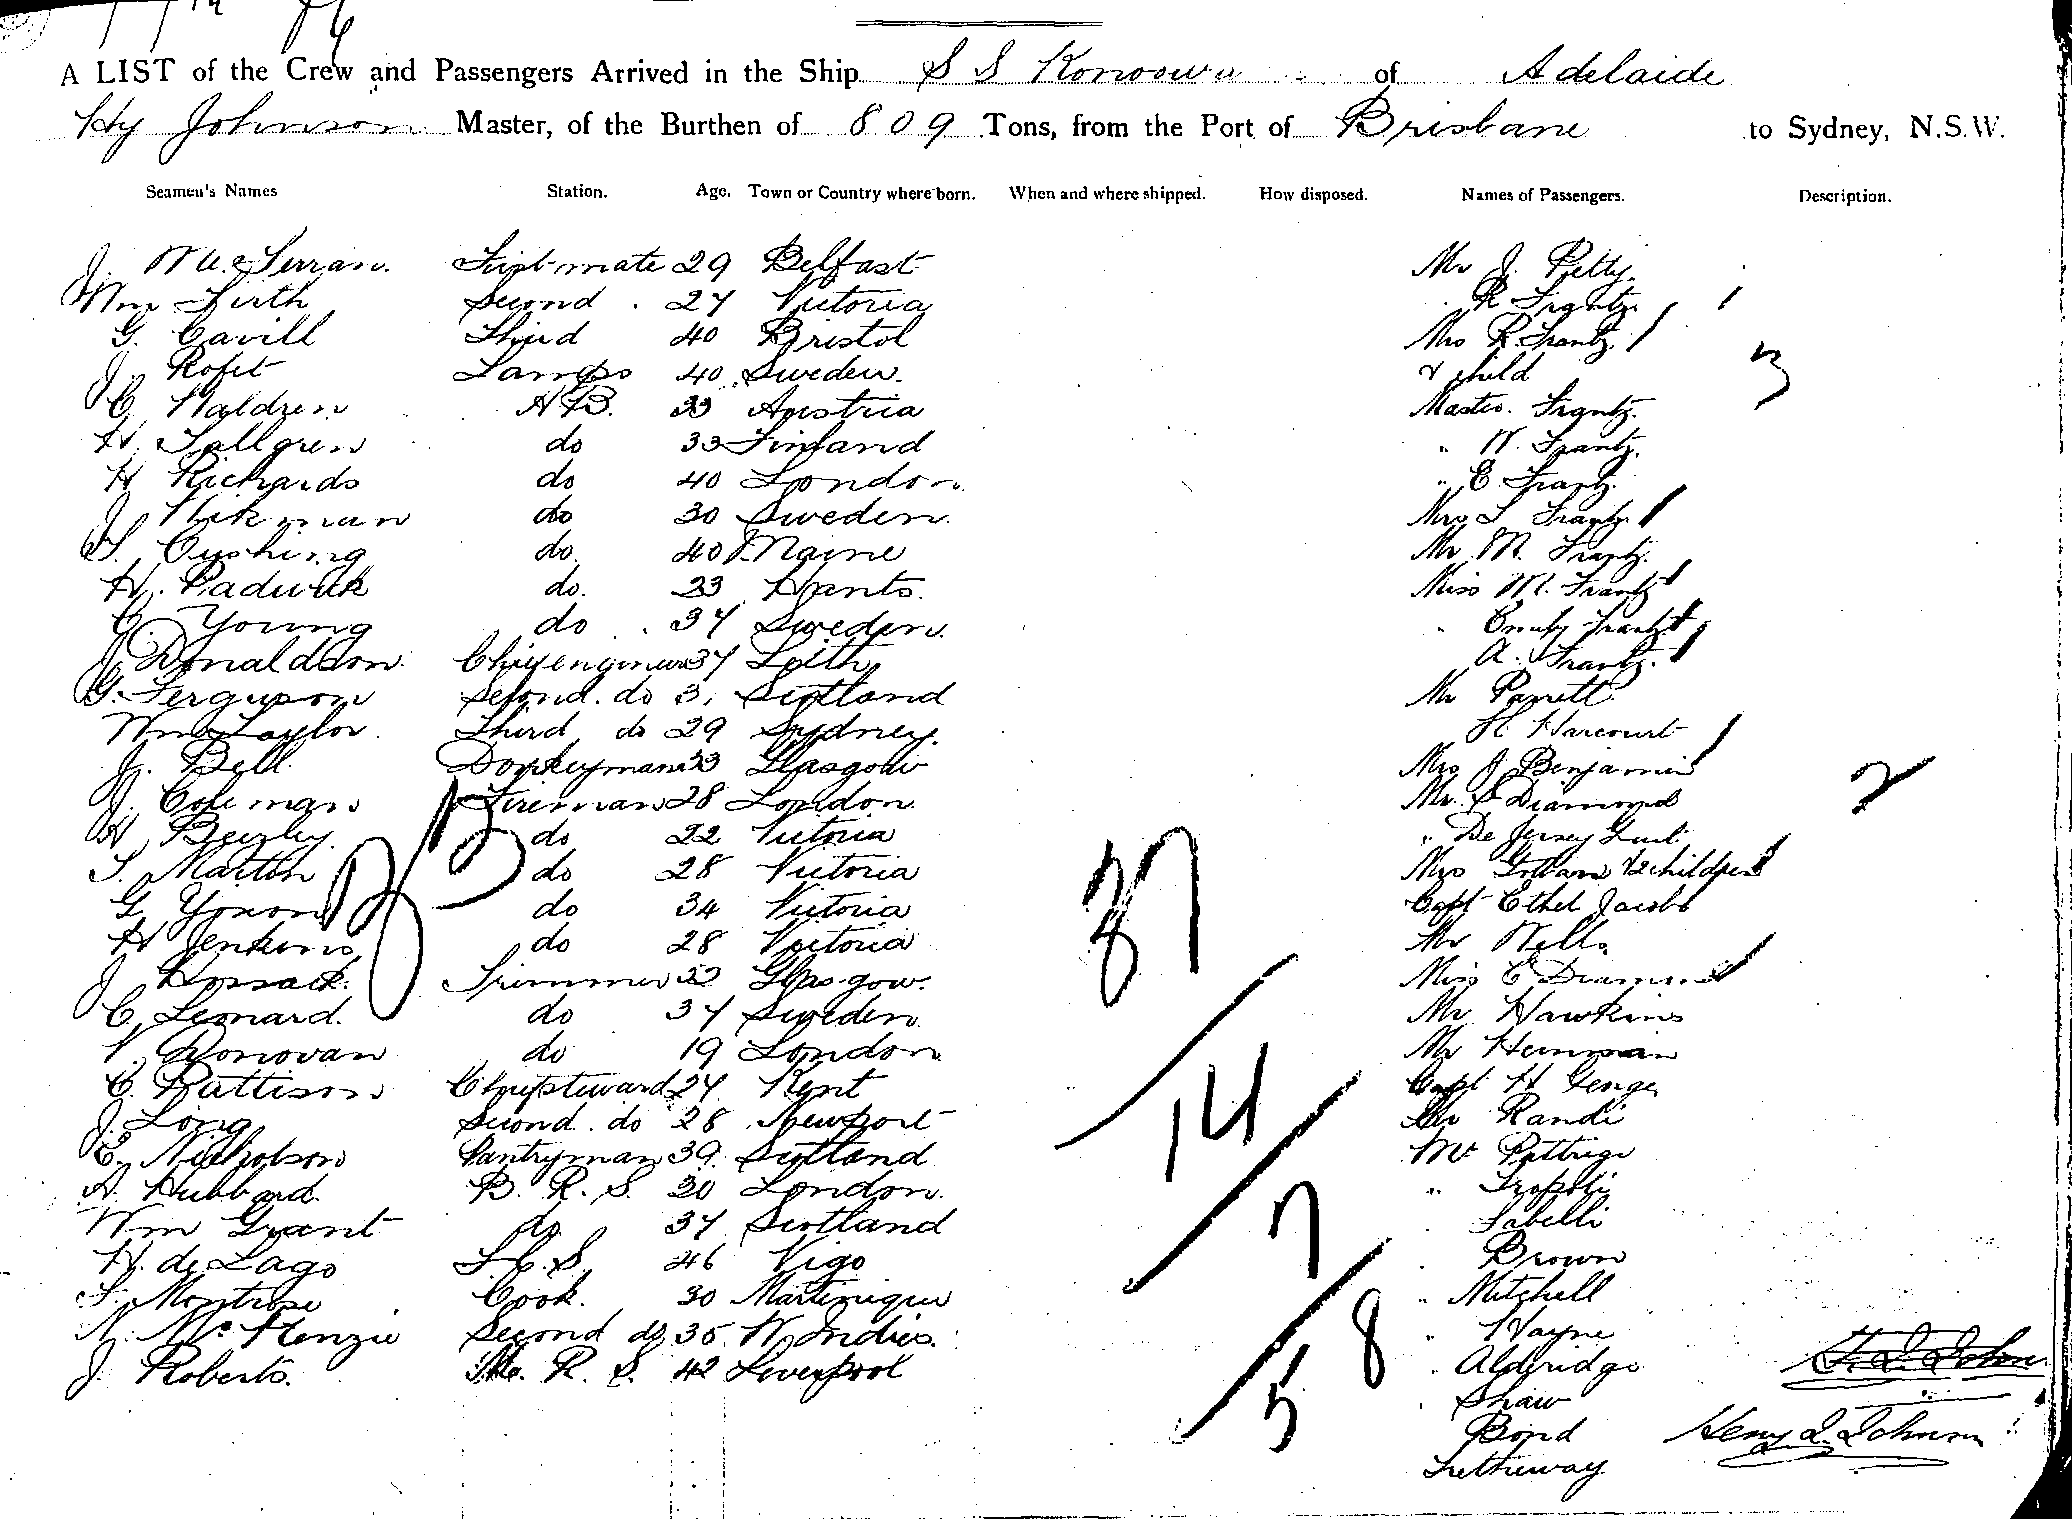 A LIST of the Crew and Passengers Arrived in the Ship S S Konoowa of Adelaide
Hy Johnson Master, of the Burthen of 809 Tons, from the Port of Brisbane to Sydney, N.S.W.
Seamen's Names Station. Age. Town or Country where born. When and where shipped. How disposed. Names of Passengers. Description.
J. First mate 29 Belfast Mr J. Petty
Wm Firth Second 27 Victoria R Frantz
G. Cavill Third 40 Bristol Mrs R. Frantz
J. Lamps 40 Sweden & child 3
C. Naldren A B. 33 Austria Master. Frantz.
H. Sallgren do 33 Finland " W. Frantz.
H Richards do 40 London " E Frantz.
J Wikman do 30 Sweden. Mrs S Frantz
S. Cushing do 40 Maine Mr M. Frantz.
H. Padwick do. 23 Hants. Miss M. Frantz
C. Young do 37 Sweden. " Emily Frantz
J. Donaldson Chief engineer 37 Leith A. Frantz.
G. Ferguson Second. do Scotland Mr Parrett
Wm Taylor Third do 29 Sydney. H. Harcourt
J. Bell Donkeyman 33 Glasgow Mrs J Benjamin
J. Coleman Fireman 28 London Mr S Diamond 2
H Beezley do 22 Victoria " De Jersey
S. Martin do 28 Victoria Mrs & 2 children
G do 34 Victoria Capt Ethel Jacobs
H Jenkins do 28 Victoria Mr Wells
J Hossack. Trimmer Glasgow. Miss C
C. Leonard. do 37 Sweden Mr Hawkins
Donovan do 19 London Mr Henman
C. Pattison Chief steward 27 Kent Capt H Genge
J. Long Second. do 28 Newport Mr Randi
E. Nicholson Pantryman 39. Scotland Mr
A. Hubbard. B. R. S. 20 London. "
Wm Grant do 37 Scotland Sabelli
H. de Lago 46 Vigo Brown
S. Montrose Cook. 30 Martinique " Mitchell
N. McKenzie Second do 35 W. Indies. " Wayne
J. Roberts. R. S. 42 Liverpool Aldridge
Shaw
Bond Henry L Johnson
Tretheway
37
14
7
8
5